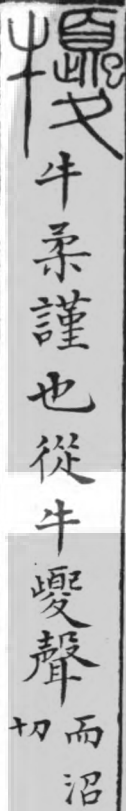 㹛
牛柔謹也從牛夒聲
而沼
切